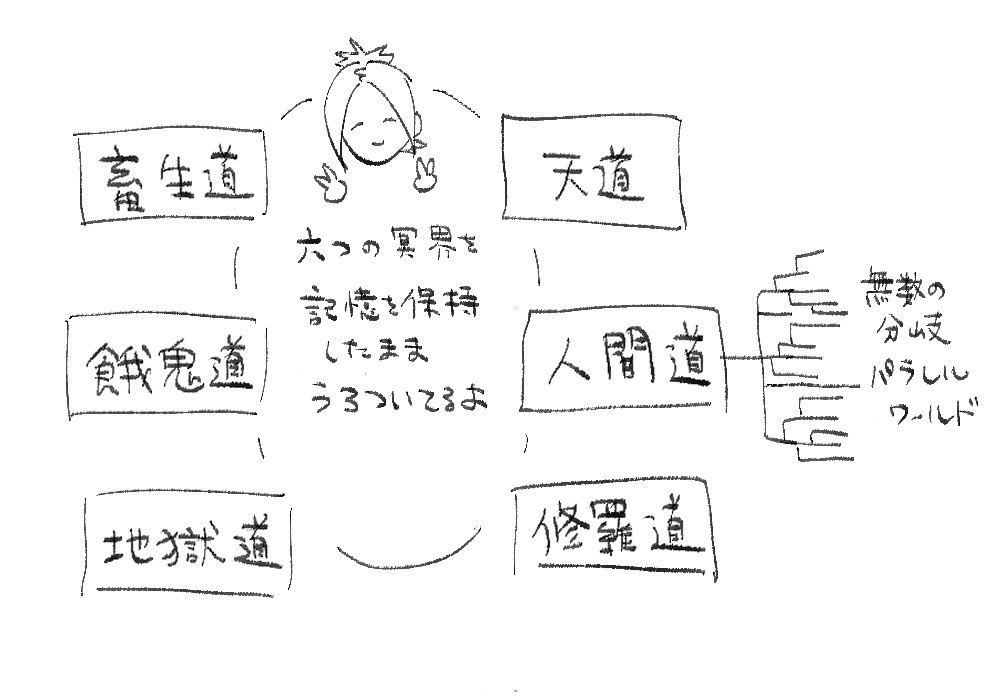 畜生道
天道
六つの冥界を
記憶を保持
したまま
うろついてるよ
餓鬼道
人間道
無数の
分岐
パラレル
ワールド
地獄道
修羅道